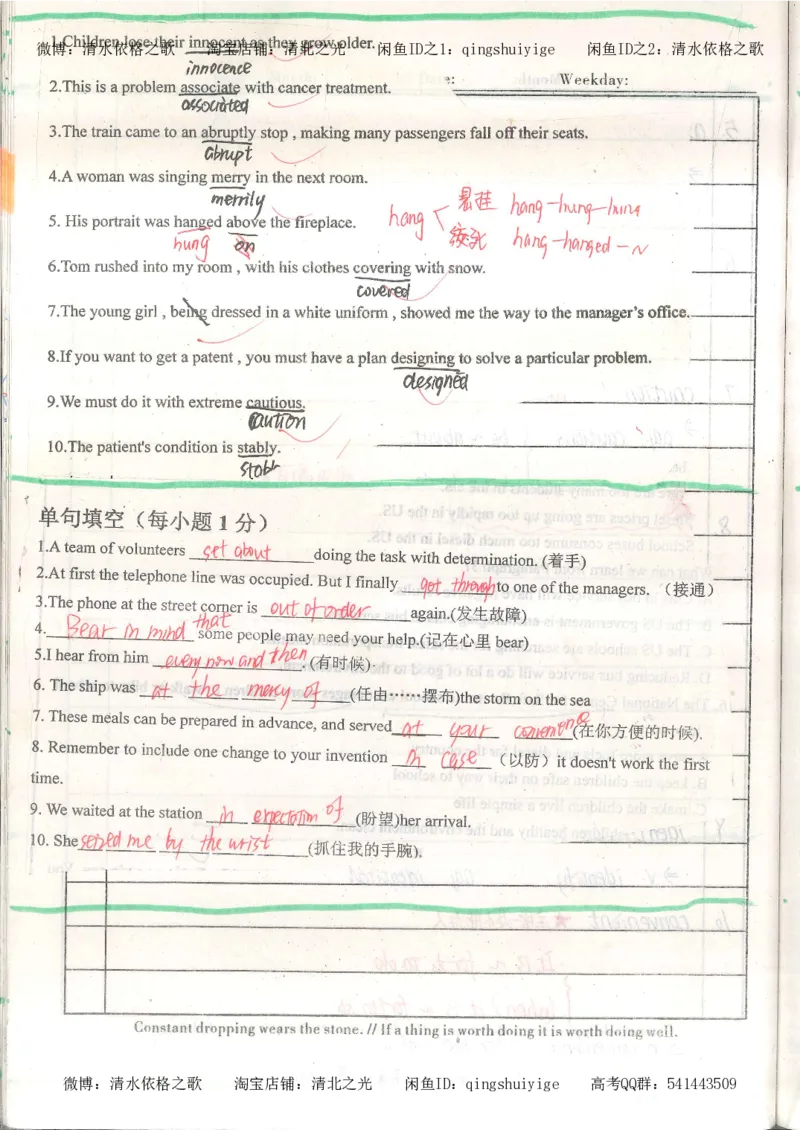 1.Children lose their innocent as they grow older.
微博：清水依格之歌 淘宝店铺：清北之光 闲鱼ID之1：qingshuiyige 闲鱼ID之2：清水依格之歌
innocence
Weekday:
2.This is a problem associate with cancer treatment.
associated
3.The train came to an abruptly stop , making many passengers fall off their seats.
abrupt
4.A woman was singing merry in the next room.
merrily
hang 悬挂 hang-hung-hung
5. His portrait was hanged above the fireplace.
hung on
绞死 hang-hanged-~
6.Tom rushed into my room , with his clothes covering with snow.
covered
7.The young girl , being dressed in a white uniform , showed me the way to the manager's office.
8.If you want to get a patent , you must have a plan designing to solve a particular problem.
designed
9.We must do it with extreme cautious.
caution
10.The patient's condition is stably.
单句填空（每小题 1 分）
1.A team of volunteers set about doing the task with determination. (着手)
2.At first the telephone line was occupied. But I finally got through to one of the managers. （接通）
3.The phone at the street corner is out of order again.(发生故障)
4. Bear in mind that some people may need your help.(记在心里 bear)
5.I hear from him every now and then .(有时候)
6. The ship was at the mercy of (任由……摆布)the storm on the sea
7. These meals can be prepared in advance, and served at your convenience (在你方便的时候).
8. Remember to include one change to your invention in case （以防）it doesn't work the first
time.
9. We waited at the station in expectation of (盼望)her arrival.
10. She seized me by the wrist (抓住我的手腕).
Constant dropping wears the stone. // If a thing is worth doing it is worth doing well.
微博：清水依格之歌 淘宝店铺：清北之光 闲鱼ID：qingshuiyige 高考QQ群：541443509